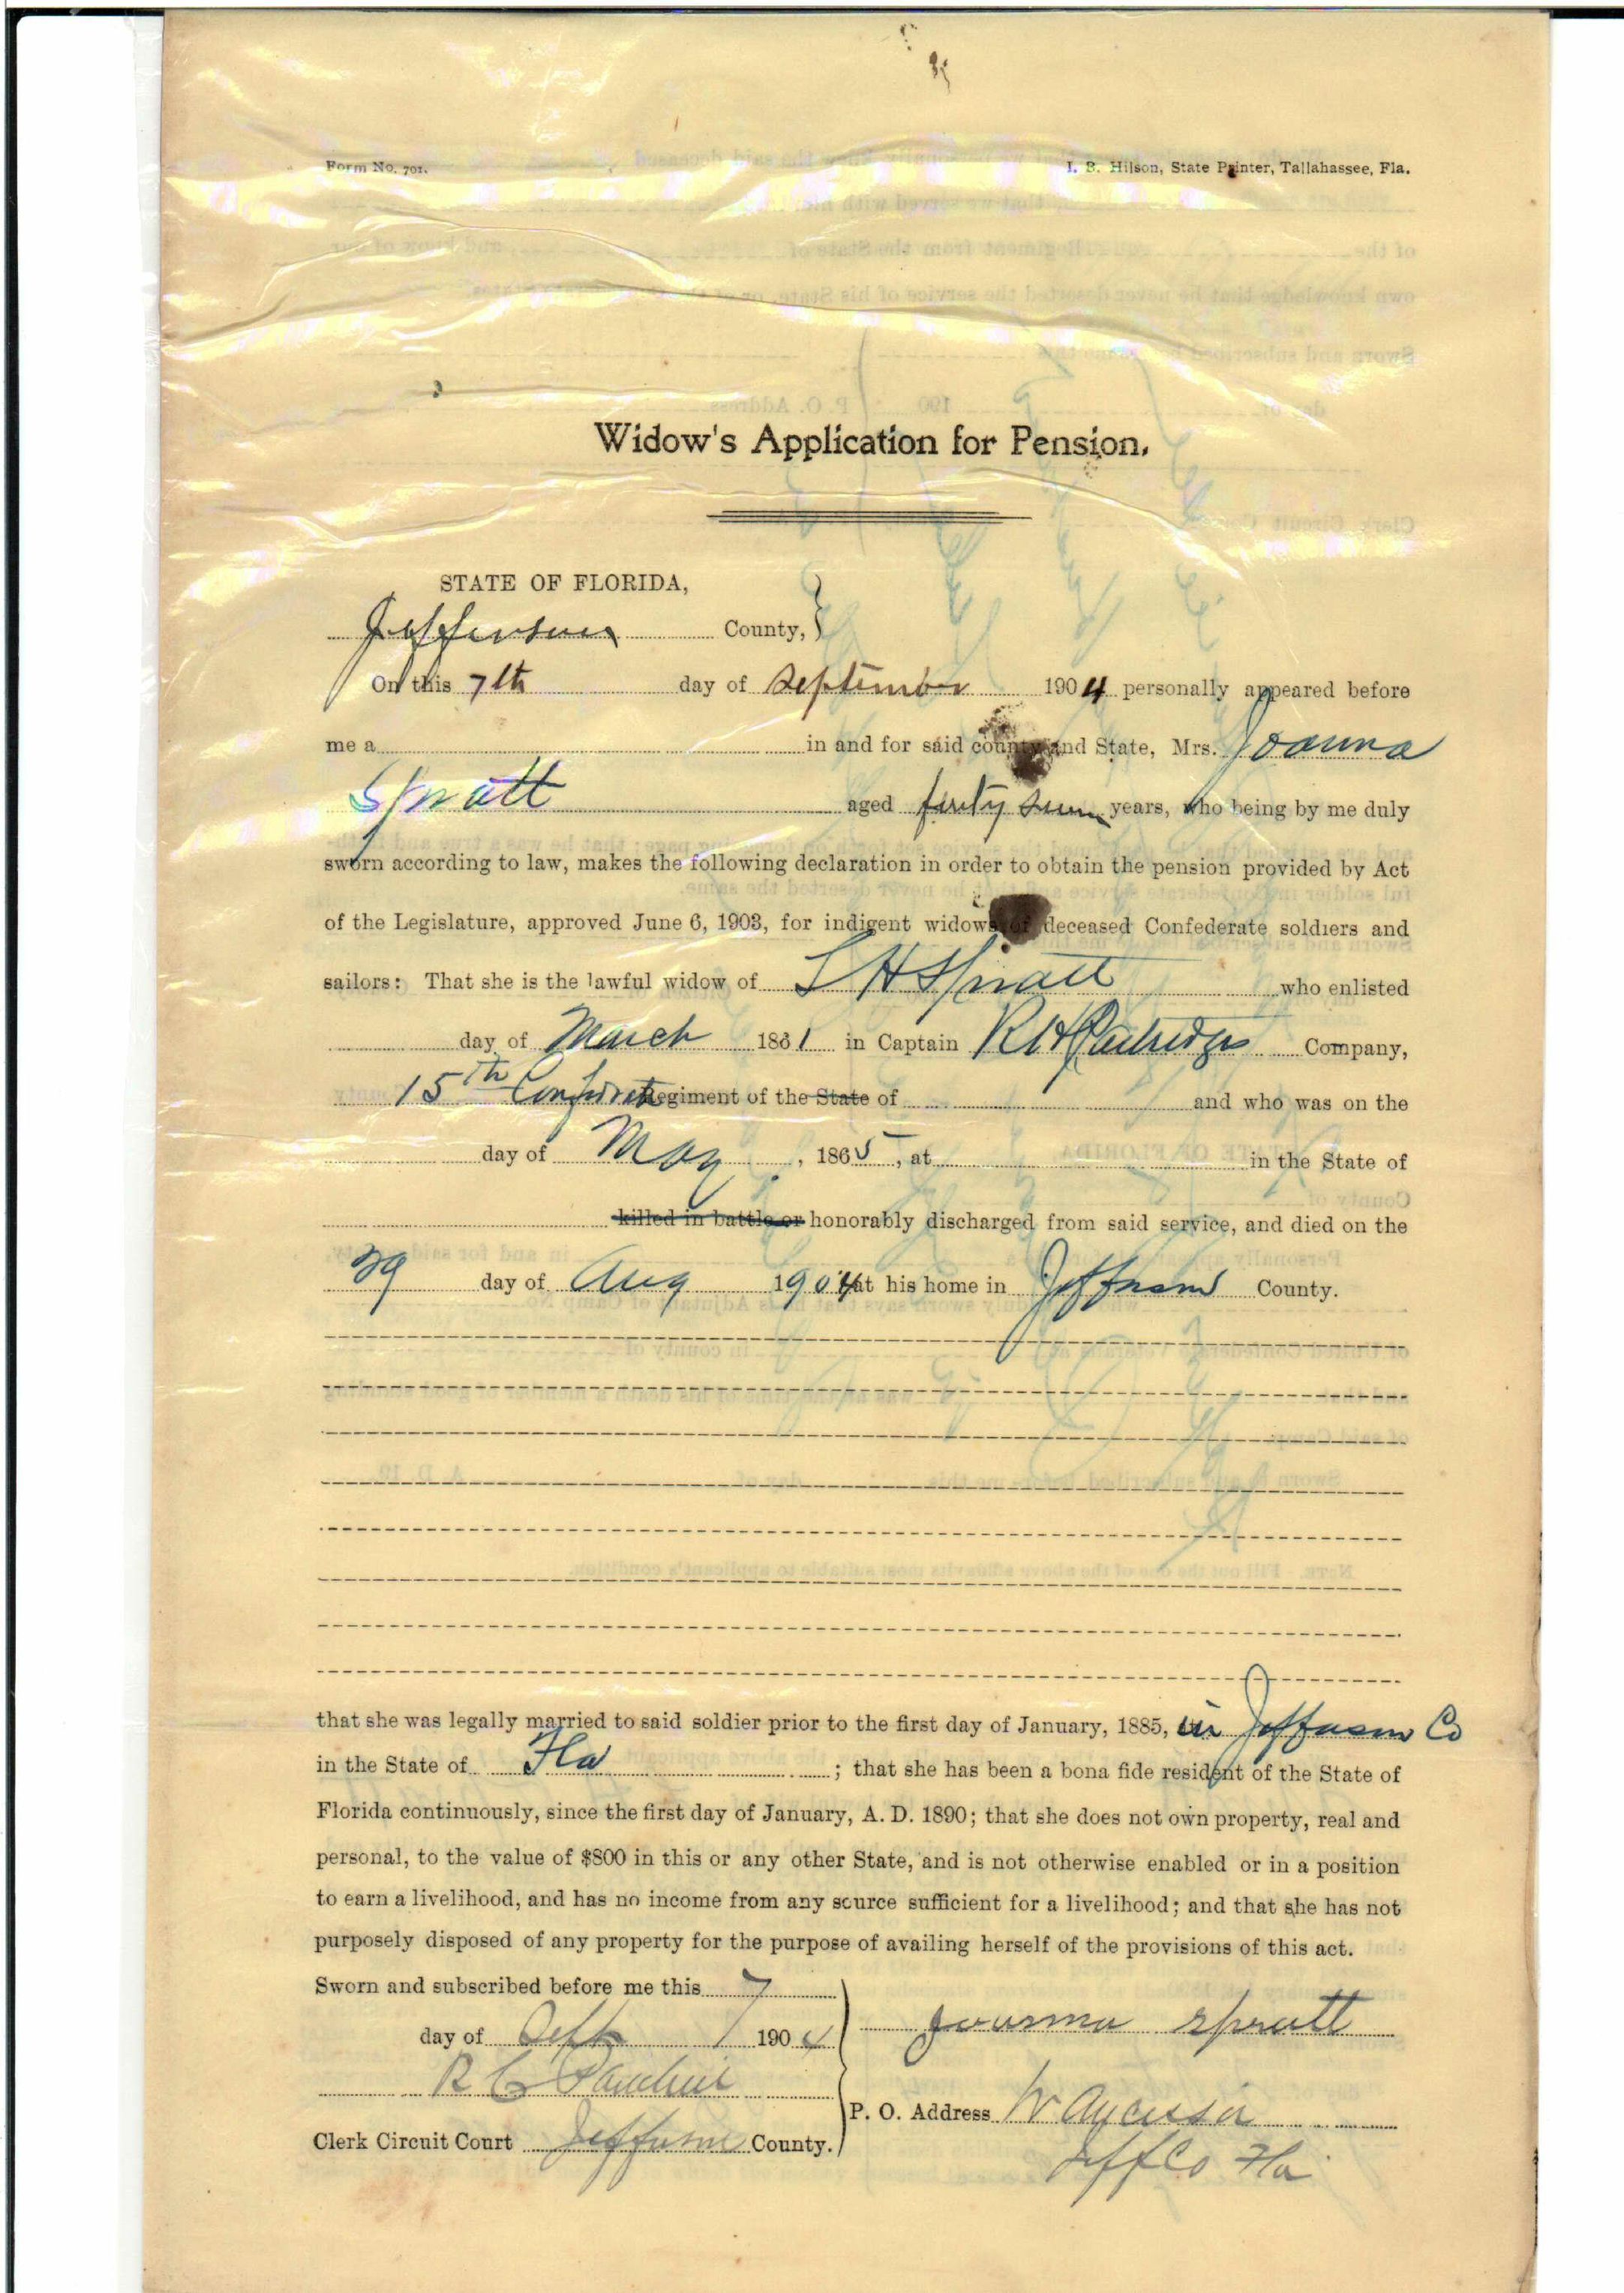 Form No. 701.
I. B. Hilson, State Printer, Tallahassee, Fla.
Widow's Application for Pension.
STATE OF FLORIDA,
Jefferson County,
On this 7th day of September 1904 personally appeared before
me a in and for said county and State, Mrs. Joanna
Spratt aged forty seven years, who being by me duly
sworn according to law, makes the following declaration in order to obtain the pension provided by Act
of the Legislature, approved June 6, 1903, for indigent widows of deceased Confederate soldiers and
sailors: That she is the lawful widow of L H Spratt who enlisted
day of March 1861 in Captain R H Partridges Company,
15th Confederate Regiment of the State of and who was on the
day of May, 1865, at in the State of
killed in battle or honorably discharged from said service, and died on the
29 day of Aug 1904 at his home in Jefferson County.
that she was legally married to said soldier prior to the first day of January, 1885, in Jefferson Co
in the State of Fla ; that she has been a bona fide resident of the State of
Florida continuously, since the first day of January, A. D. 1890; that she does not own property, real and
personal, to the value of $800 in this or any other State, and is not otherwise enabled or in a position
to earn a livelihood, and has no income from any source sufficient for a livelihood; and that she has not
purposely disposed of any property for the purpose of availing herself of the provisions of this act.
Sworn and subscribed before me this 7
day of Sept 1904
Joanna Spratt
R C
P. O. Address Waucissa
Clerk Circuit Court Jefferson County.
Jeff Co Fla